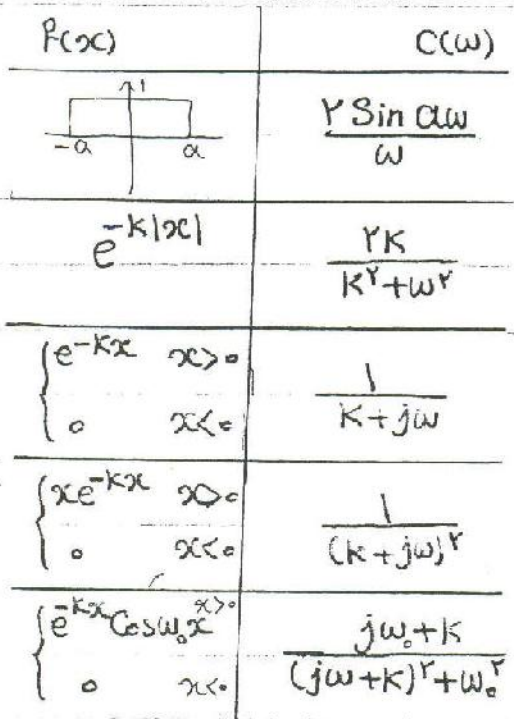 f(x) C(ω)
1
-a a
۲ Sin aω / ω
e^{-k|x|} ۲k / k^۲+ω^۲
{ e^{-kx} x>۰
۰ x<۰
۱ / k+jω
{ xe^{-kx} x>۰
۰ x<۰
۱ / (k+jω)^۲
{ e^{-kx} Cosω₀x x>۰
۰ x<۰
jω₀+k / (jω+k)^۲+ω₀^۲